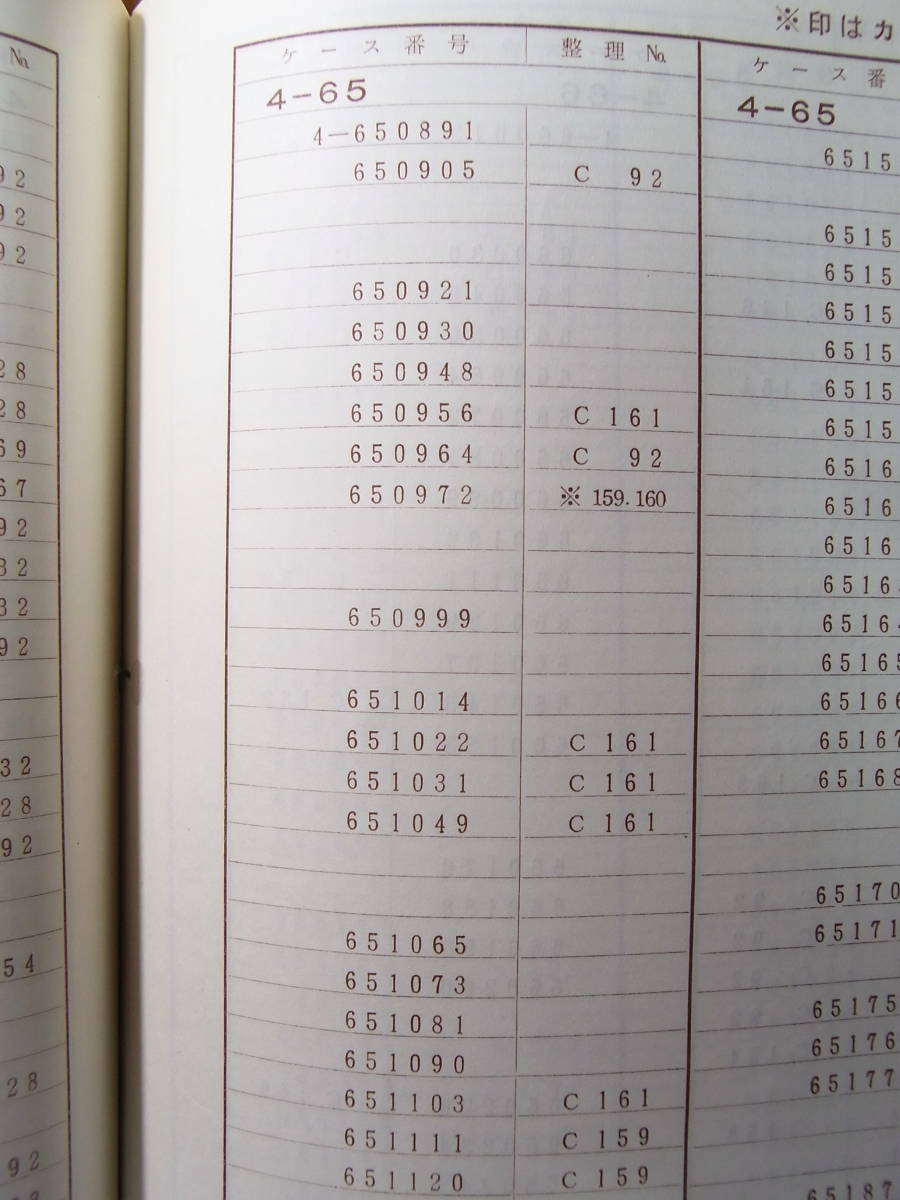 №
92
92
92
28
28
69
67
92
32
32
92
32
28
92
54
28
92
※印はカ
ケース番号 整理 №
4-65
4-650891
650905 C 92
650921
650930
650948
650956 C 161
650964 C 92
650972 ※ 159.160
650999
651014
651022 C 161
651031 C 161
651049 C 161
651065
651073
651081
651090
651103 C 161
651111 C 159
651120 C 159
ケース番
4-65
6515
6515
6515
6515
6515
6515
6515
6516
6516
6516
65163
65164
65165
65166
65167
65168
65170
65171
65175
65176
65177
65187